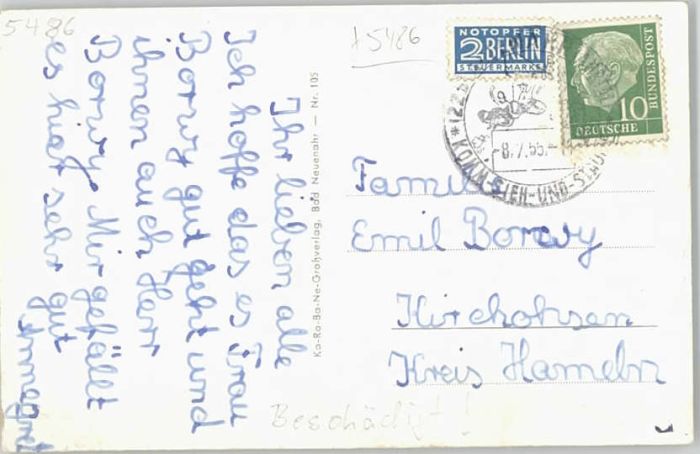 5486
A5486
Ihr lieben alle
Ich hoffe das es Frau
Borwy gut geht und
ihnen auch Herr
Borwy. Mir gefällt
es hier sehr gut
Annegret
Ka-Ra-Ba-Ne-Großverlag, Bad Neuenahr — Nr. 105
NOTOPFER
2 BERLIN
STEUERMARKE
10
DEUTSCHE
BUNDESPOST
-8.7.55.-
KOMM SIEH-UND-STAUNE
Familie
Emil Borwy
Kirchohsen
Kreis Hameln
Beschädigt!